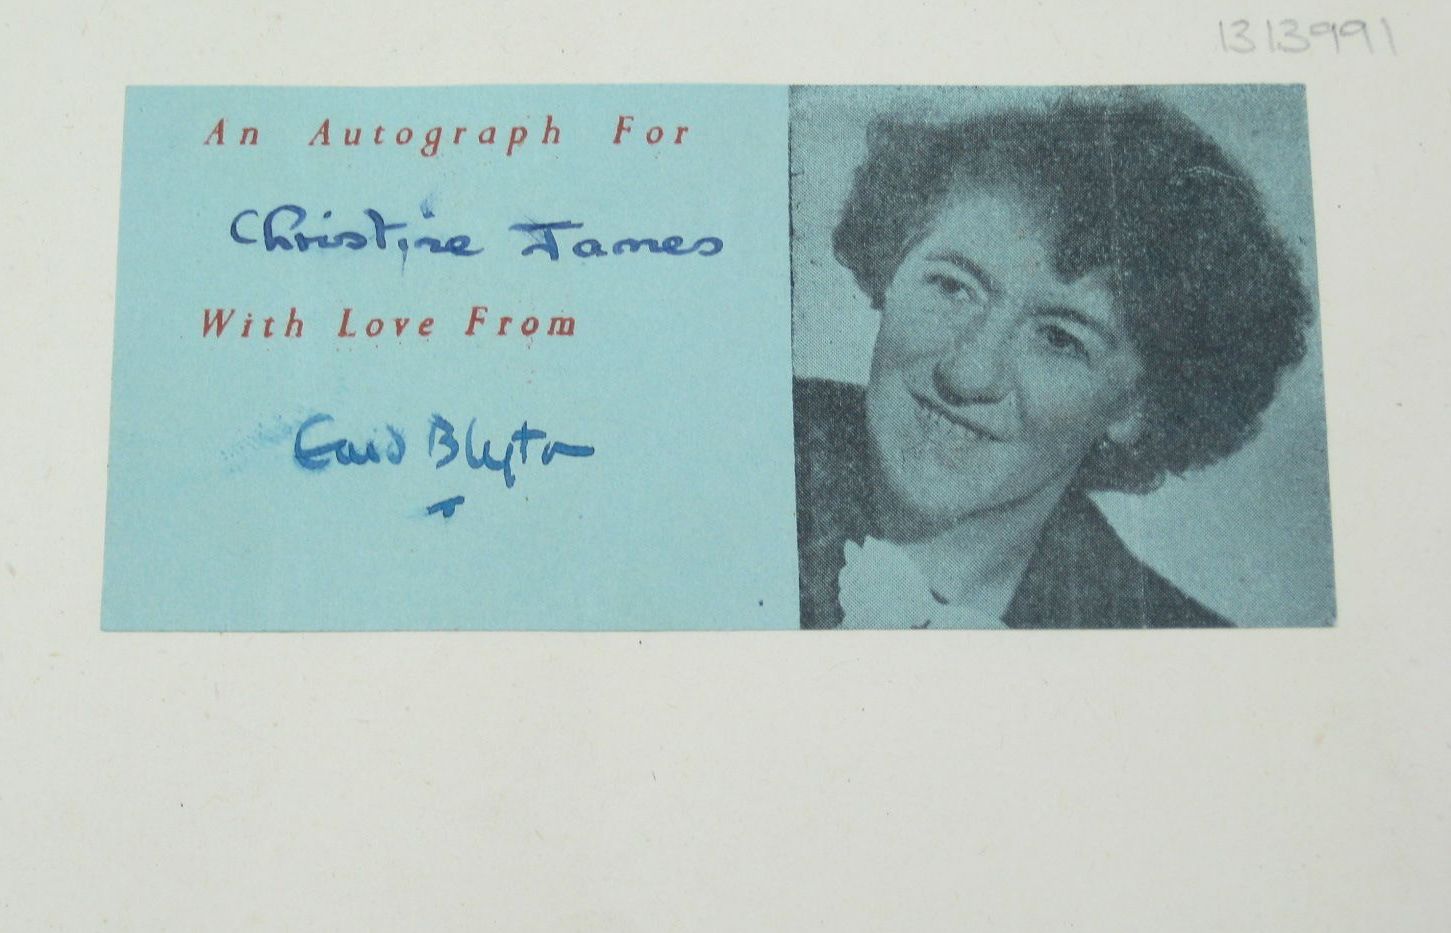 1313991
An Autograph For
Christine James
With Love From
Enid Blyton